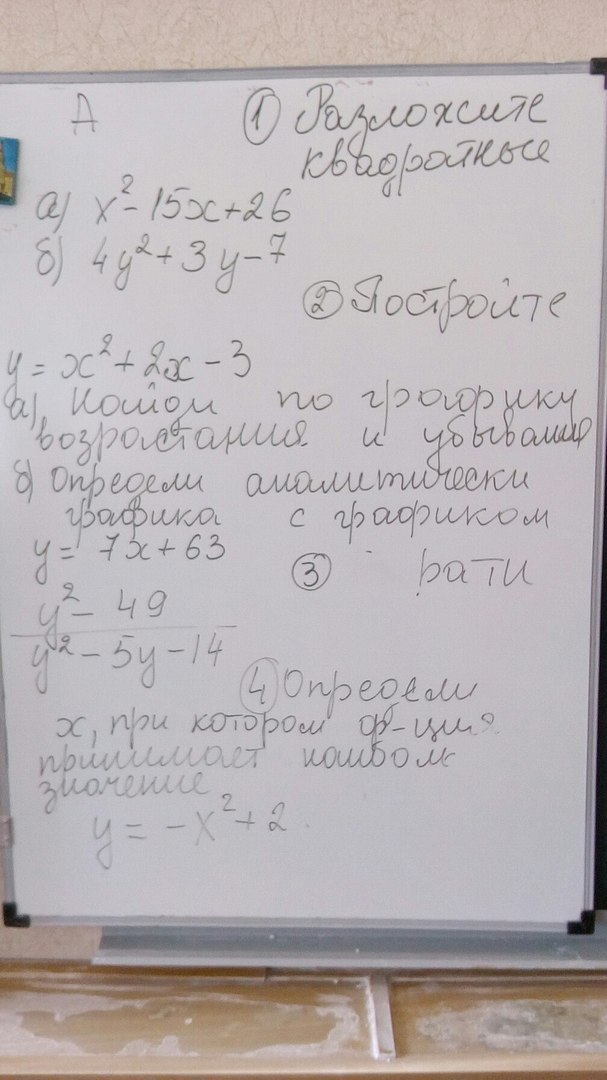 А ① Разложите
квадратные
а) x² - 15x + 26
б) 4y² + 3y - 7
② Постройте
y = x² + 2x - 3
а) Найди по графику
возрастания и убывания
б) Определи аналитически
графика с графиком
y = 7x + 63
③ рати
y² - 49
y² - 5y - 14
④ Определи
x, при котором ф-ция
принимает наибол
значение
y = -x² + 2